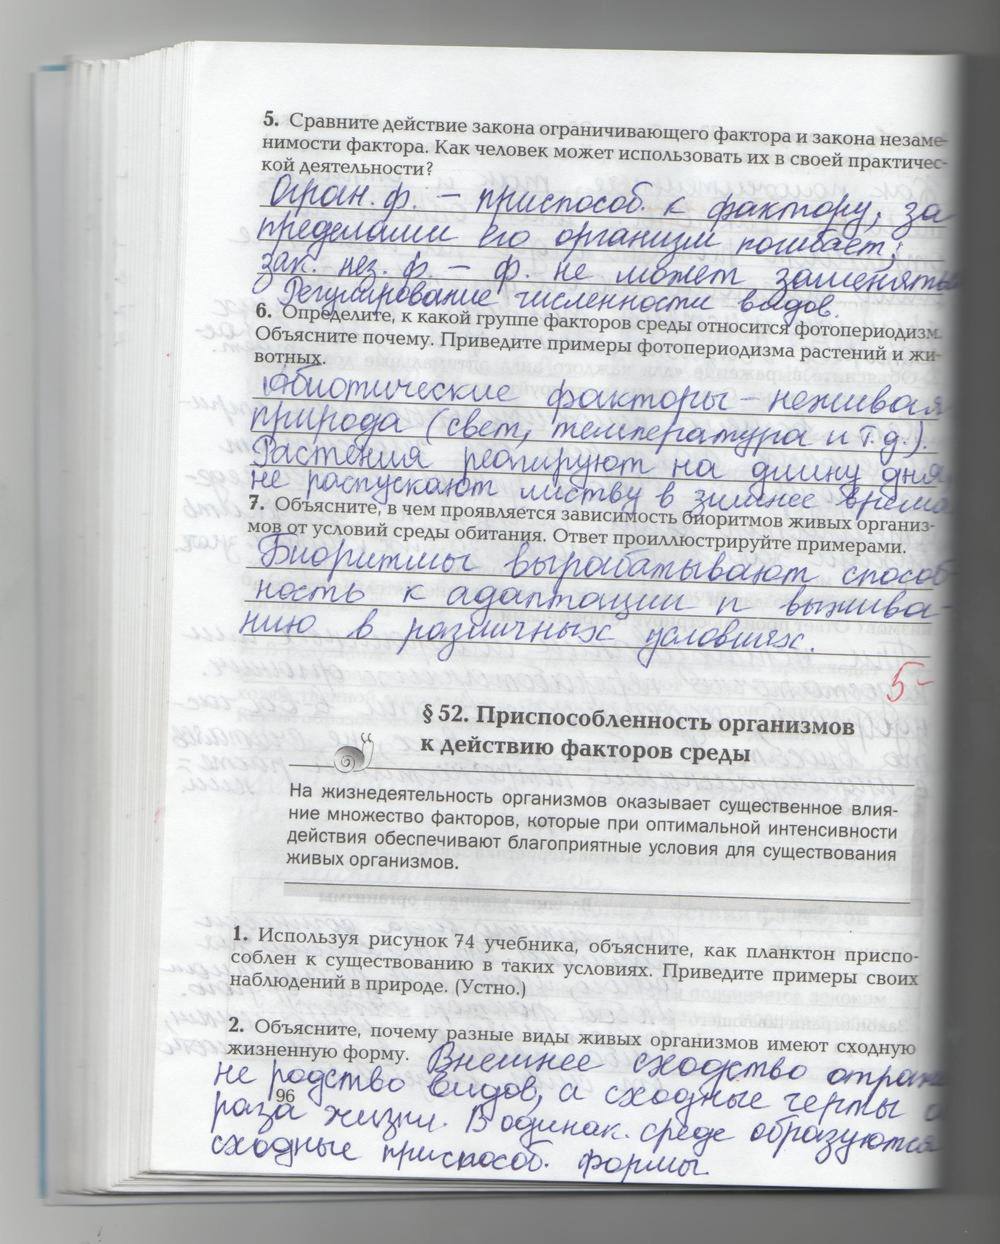 5. Сравните действие закона ограничивающего фактора и закона незаме-
нимости фактора. Как человек может использовать их в своей практичес-
кой деятельности?
Огран. ф. – приспособ. к фактору, за
пределами его организм погибает;
зак. нез. ф. – ф. не может заменять
Регулирование численности видов.
6. Определите, к какой группе факторов среды относится фотопериодизм.
Объясните почему. Приведите примеры фотопериодизма растений и жи-
вотных.
Абиотические факторы – неживая
природа (свет, температура и т.д.).
Растения реагируют на длину дня
не распускают листву в зимнее время
7. Объясните, в чем проявляется зависимость биоритмов живых организ-
мов от условий среды обитания. Ответ проиллюстрируйте примерами.
Биоритмы вырабатывают способ-
ность к адаптации и выжива-
нию в различных условиях.
5-
§ 52. Приспособленность организмов
к действию факторов среды
На жизнедеятельность организмов оказывает существенное влия-
ние множество факторов, которые при оптимальной интенсивности
действия обеспечивают благоприятные условия для существования
живых организмов.
1. Используя рисунок 74 учебника, объясните, как планктон приспо-
соблен к существованию в таких условиях. Приведите примеры своих
наблюдений в природе. (Устно.)
2. Объясните, почему разные виды живых организмов имеют сходную
жизненную форму. Внешнее сходство отраж
не родство видов, а сходные черты о
96
раза жизни. В одинак. среде образуются
сходные приспособ. формы.